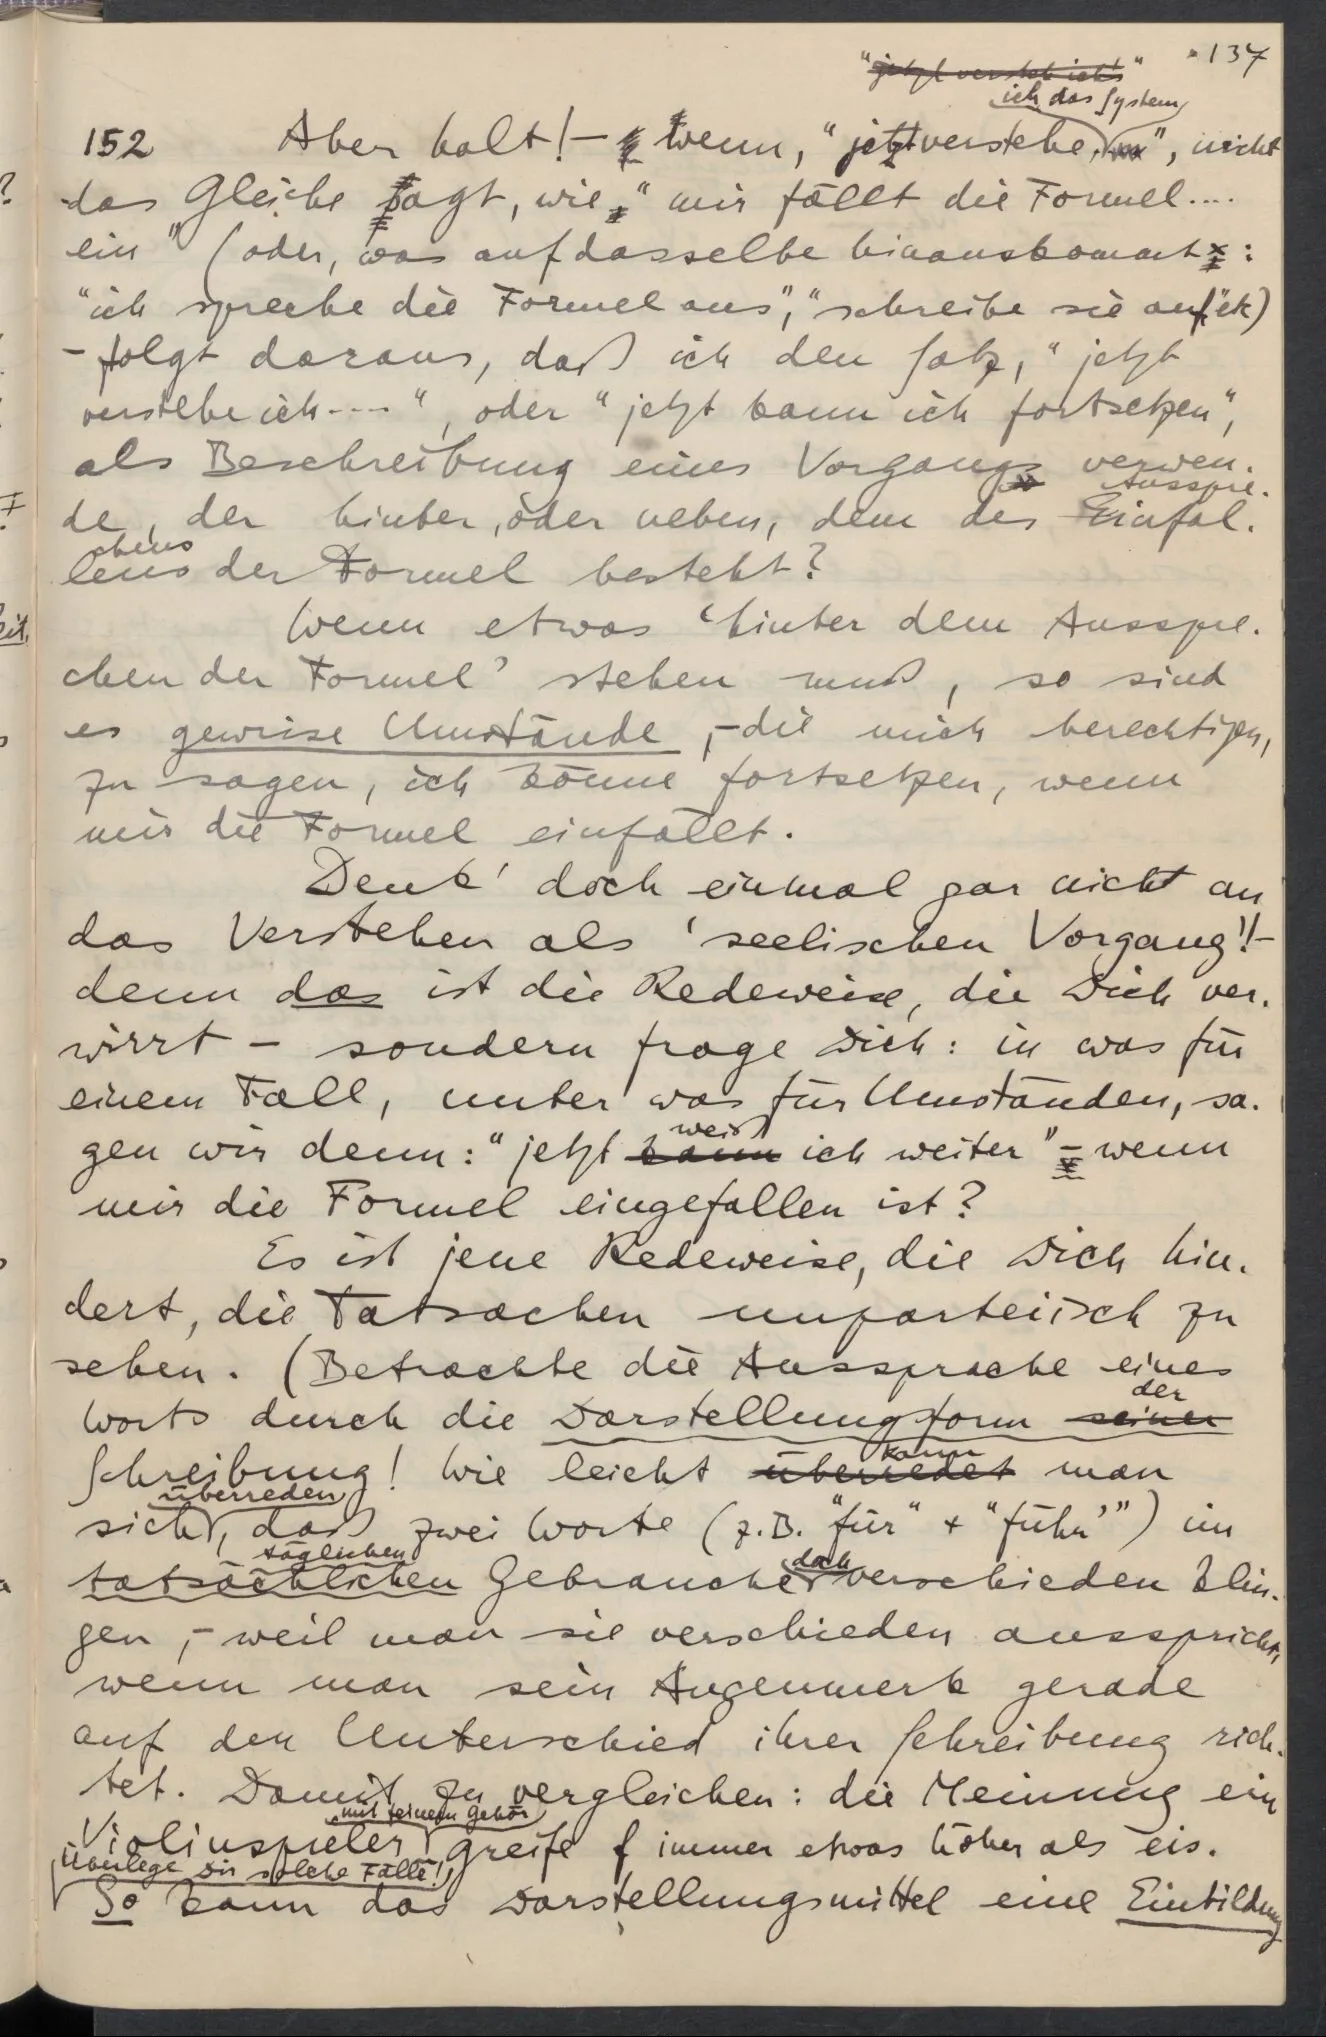 137
"jetzt versteh ich's"
ich das System
152 Aber halt! – wenn, "jetzt verstehe", nicht
das Gleiche sagt, wie, "mir fällt die Formel....
ein" (oder, was auf dasselbe hinauskommt:
"ich spreche die Formel aus", "schreibe sie auf" etc)
– folgt daraus, daß ich den Satz, "jetzt
verstehe ich----", oder "jetzt kann ich fortsetzen",
als Beschreibung eines Vorgangs verwen-
Ausspre-
de, der hinter, oder neben, dem des Einfal-
chens
lens der Formel besteht?
Wenn etwas 'hinter dem Ausspre-
chen der Formel' stehen muß, so sind
es gewisse Umstände, – die mich berechtigen,
zu sagen, ich könne fortsetzen, wenn
mir die Formel einfällt.
Denk' doch einmal gar nicht an
das Verstehen als 'seelischen Vorgang'! –
denn das ist die Redeweise, die Dich ver-
wirrt – sondern frage Dich: in was für
einem Fall, unter was für Umständen, sa-
weiß
gen wir denn: "jetzt kann ich weiter" – wenn
mir die Formel eingefallen ist?
Es ist jene Redeweise, die Dich hin-
dert, die Tatsachen unparteiisch zu
sehen. (Betrachte die Aussprache eines
der
Worts durch die Darstellungsform seiner
Schreibung! Wie leicht überredet man
kann
überreden
sich, daß zwei Worte (z.B. "für" + "führ'") im
täglichen
doch
tatsächlichen Gebrauche verschieden klin-
gen, – weil man sie verschieden ausspricht,
wenn man sein Augenmerk gerade
auf den Unterschied ihrer Schreibung rich-
tet. Damit zu vergleichen: die Meinung ein
mit feinem Gehör
Violinspieler greife f immer etwas höher als eis.
Überlege Dir solche Fälle!)
So kann das Darstellungsmittel eine Einbildung